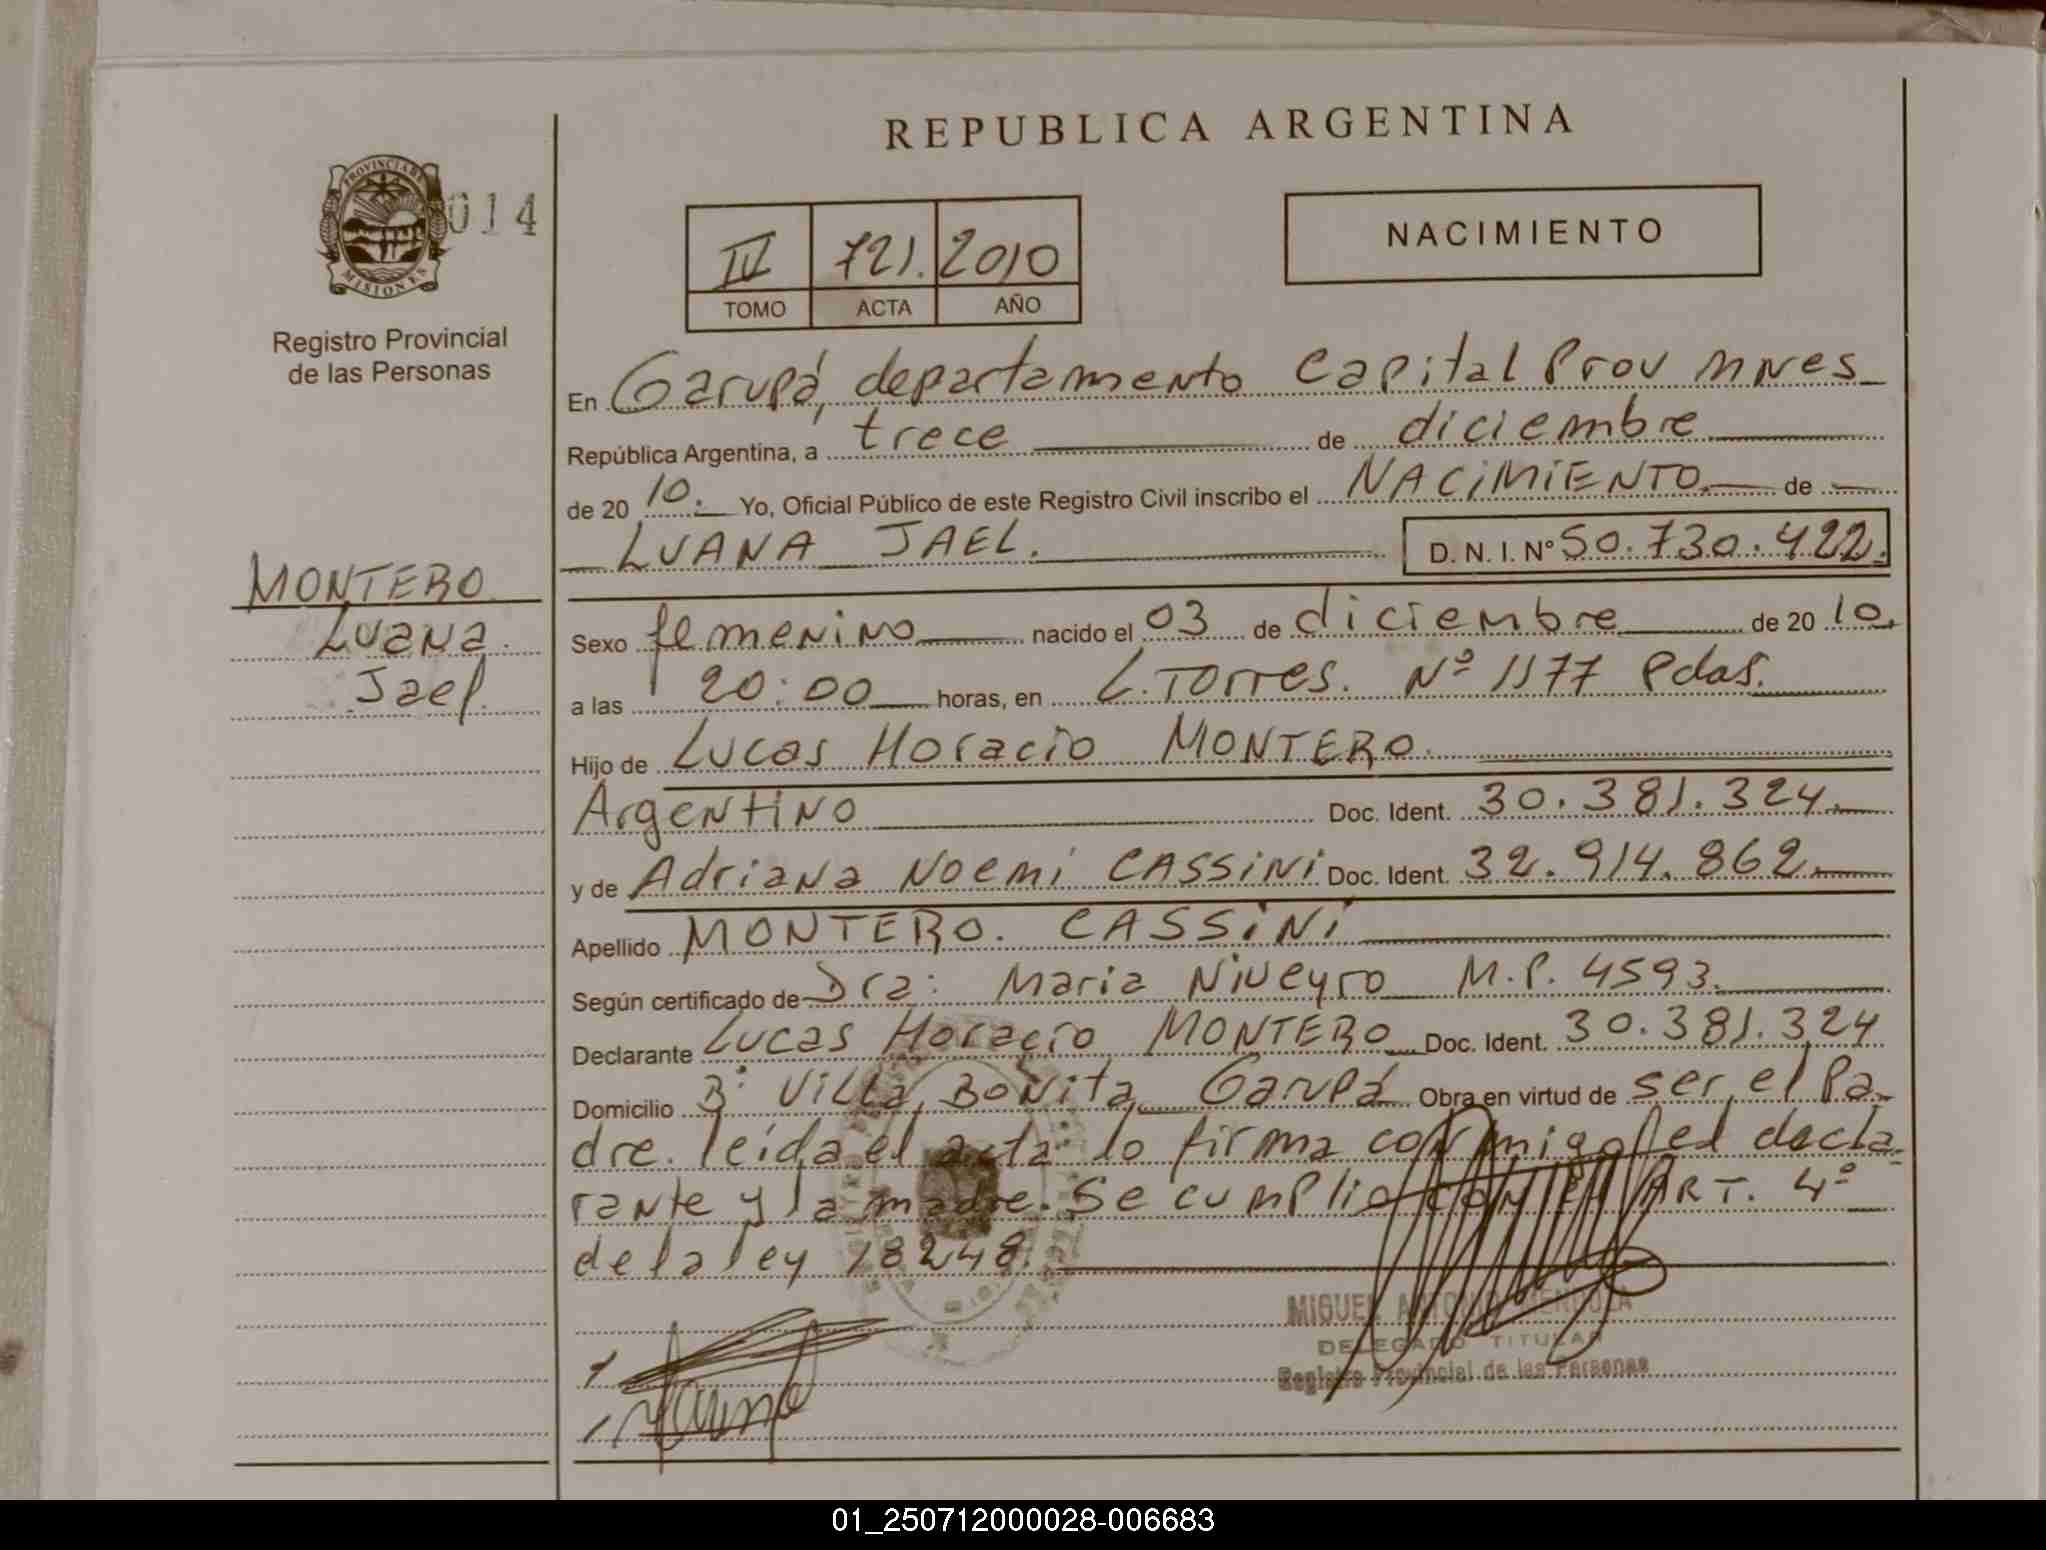 REPUBLICA ARGENTINA
PROVINCIA DE
MISIONES
014
Registro Provincial
de las Personas
IV 721. 2010
TOMO ACTA AÑO
NACIMIENTO
En Garupá, departamento Capital Prov Mnes
República Argentina, a trece de diciembre
de 20 10. Yo, Oficial Público de este Registro Civil inscribo el NACIMIENTO de
LUANA JAEL. D. N. I. Nº 50.730.422.
MONTERO
Luana
Jael.
Sexo femenino nacido el 03 de diciembre de 20 10.
a las 20:00 horas, en L. Torres. Nº 1177 Pdas.
Hijo de Lucas Horacio MONTERO.
Argentino Doc. Ident. 30.381.324.
y de Adriana Noemí CASSINI Doc. Ident. 32.914.862.
Apellido MONTERO. CASSINI
Según certificado de Dra: Maria Niveyro M.P. 4593.
Declarante Lucas Horacio MONTERO Doc. Ident. 30.381.324
Domicilio Bº Villa Bonita, Garupá Obra en virtud de ser el Pa-
dre. leída el acta lo firma conmigo el decla-
rante y la madre. Se cumplio con el ART. 4º
de la ley 18248.
MIGUEL ANTONIO
DELEGADO TITULAR
Registro Provincial de las Personas
01_250712000028-006683